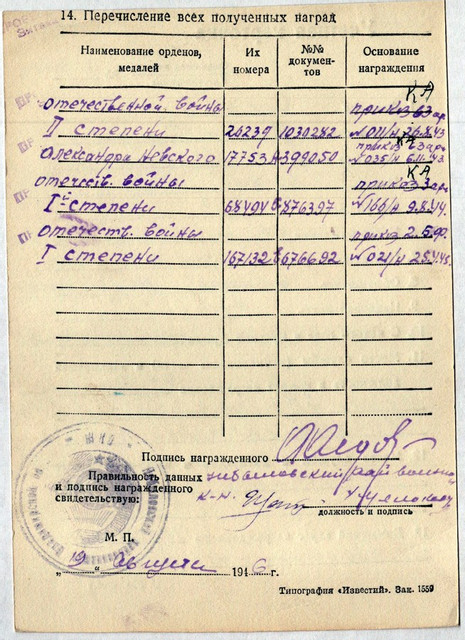 14. Перечисление всех полученных наград
Наименование орденов, медалей
Их номера
№№ документов
Основание награждения
КА
отечественной войны приказ 63 ар.
II степени 26239 1030282 № 011/н 26.8.43
Александра Невского 17753 А399050 № 035/н 6.11.43
КА
отечеств. войны приказ 3 ар.
I й степени 68494 876397 № 166/н 9.8.44
отечеств. войны приказ
I степени 167132 676692 № 021/н
Подпись награжденного
Правильность данных
и подпись награжденного
свидетельствую:
должность и подпись
М. П.
августа 1946 г.
Типография «Известий». Зак. 1559